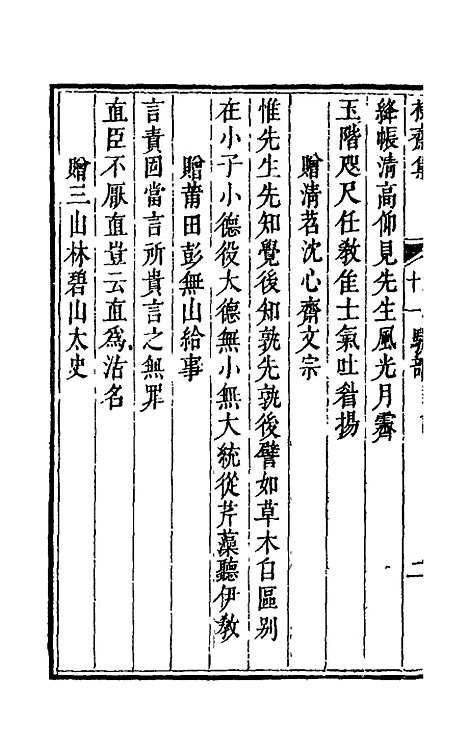 絳帳清高仰見先生風光月霽
玉階咫尺任教隹士氣吐眉揚
贈清苕沈心齋文宗
惟先生先知覺後知孰先孰後譬如草木自區别
在小子小德役大德無小無大統從芹藻聽伊教
贈莆田彭無山給事
言責固當言所貴言之無罪
直臣不厭直豈云直爲沽名
贈三山林碧山太史
集
十一
二